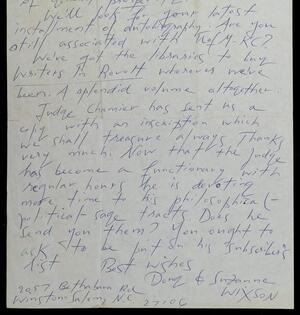 We'll look for your latest
installment of autobiography. Are you
still associated with U of M-KC?
We've got the libraries to buy
Writers in Revolt wherever we've
been. A splendid volume altogether.
Judge Chamier has sent us a
copy with an inscription which
we shall treasure always. Thanks
very much. Now that the Judge
has become a functionary with
regular hours he is devoting
more time to his philosophical-
political sage tracts. Does he
send you them? You ought to
ask to be put on his subscriber
list. Best wishes
Doug & Suzanne
WIXSON
2057, Bethabara Rd.
Winston-Salem, N.C. 27106